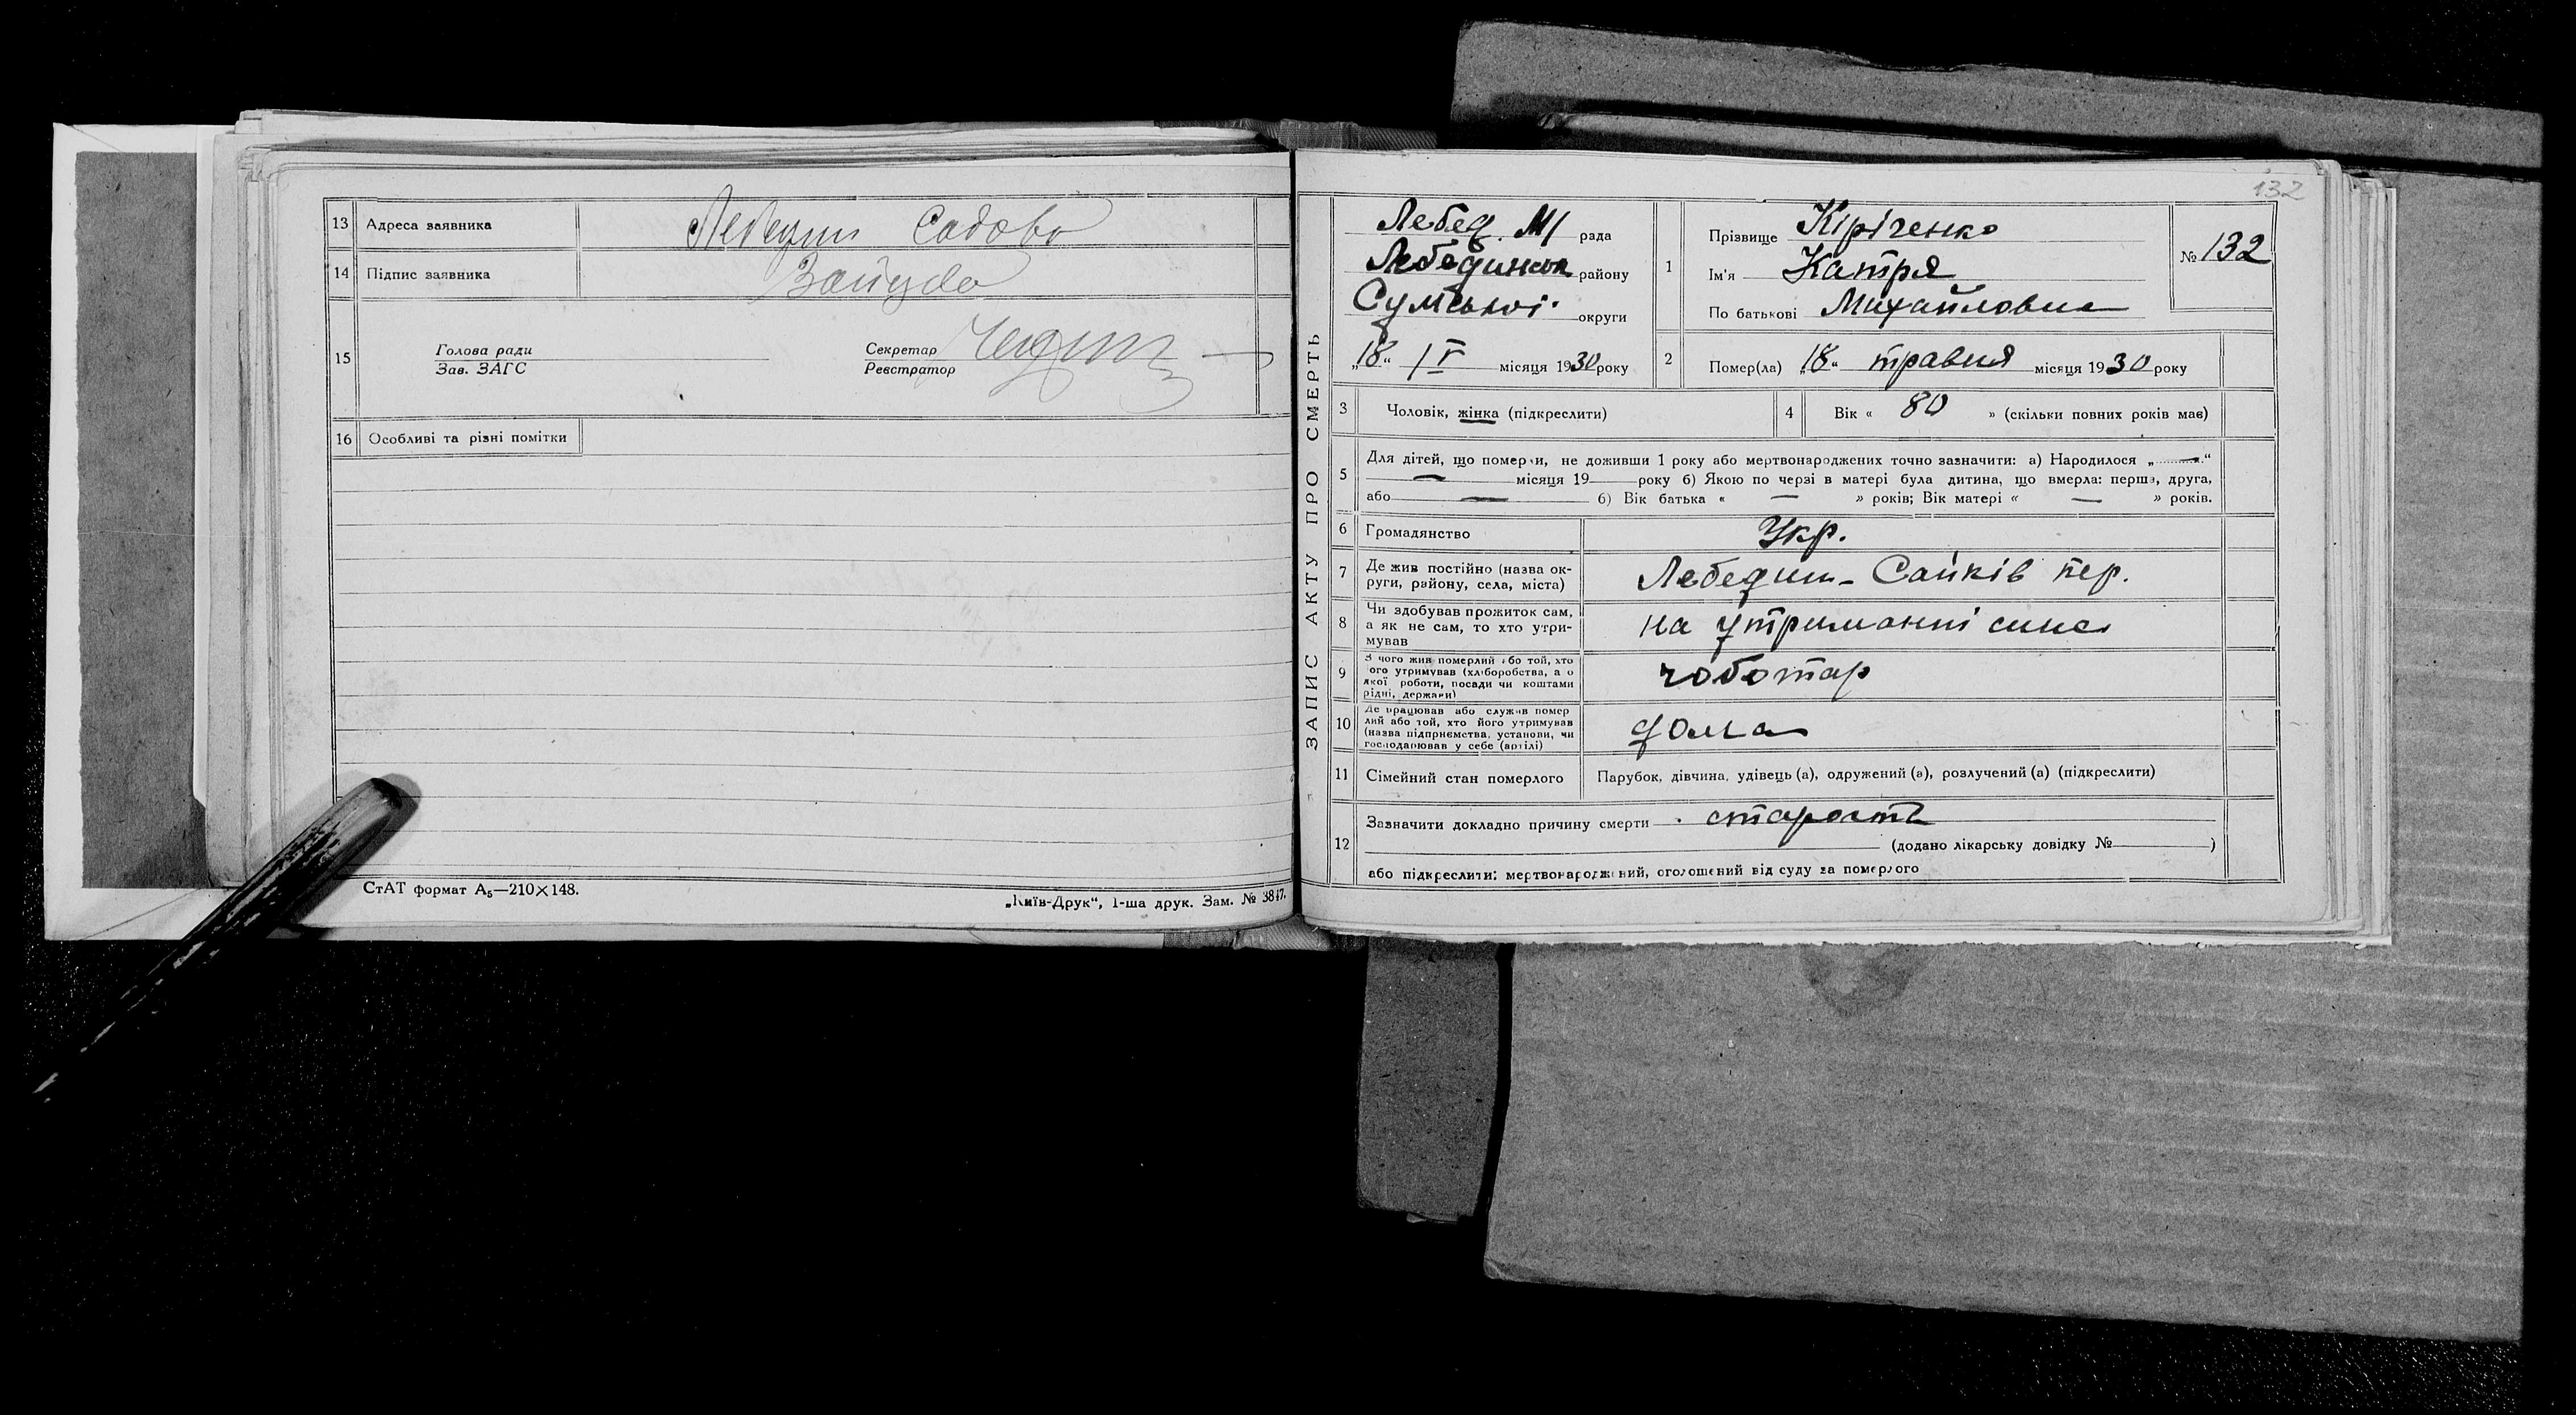 13 Адреса заявника Лебедин Садова
14 Підпис заявника
15 Голова ради
Зав. ЗАГС
Секретар
Реєстратор
16 Особливі та різні помітки
СтАТ формат А5—210×148.
„Київ-Друк“, 1-ша друк. Зам. № 3847.
132
ЗАПИС АКТУ ПРО СМЕРТЬ
Лебед. М/ рада
Лебединськ району
Сумської округи
„18“ місяця 1930 року
1 Прізвище Кіріченко
Ім'я Катря
По батькові Михайловна
№ 132
2 Помер(ла) „18“ травня місяця 1930 року
3 Чоловік, жінка (підкреслити)
4 Вік « 80 » (скільки повних років має)
5 Для дітей, що померли, не доживши 1 року або мертвонароджених точно зазначити: а) Народилося „—“
— місяця 19 року б) Якою по черзі в матері була дитина, що вмерла: перша, друга,
або — б) Вік батька « — » років; Вік матері « — » років.
6 Громадянство Укр.
7 Де жив постійно (назва ок-
руги, району, села, міста) Лебедин - Сайків пер.
8 Чи здобував прожиток сам,
а як не сам, то хто утри-
мував на утриманні сина
9 З чого жив померлий або той, хто
його утримував (хліборобства, а о
якої роботи, посади чи коштами
рідні, держави) чоботар
10 Де працював або служив помер
лий або той, хто його утримував
(назва підприємства, установи, чи
господарював у себе (артілі) дома
11 Сімейний стан померлого Парубок, дівчина, удівець (а), одружений (а), розлучений (а) (підкреслити)
12 Зазначити докладно причину смерти старость
(додано лікарську довідку № )
або підкреслити: мертвонароджений, оголошений від суду за померлого